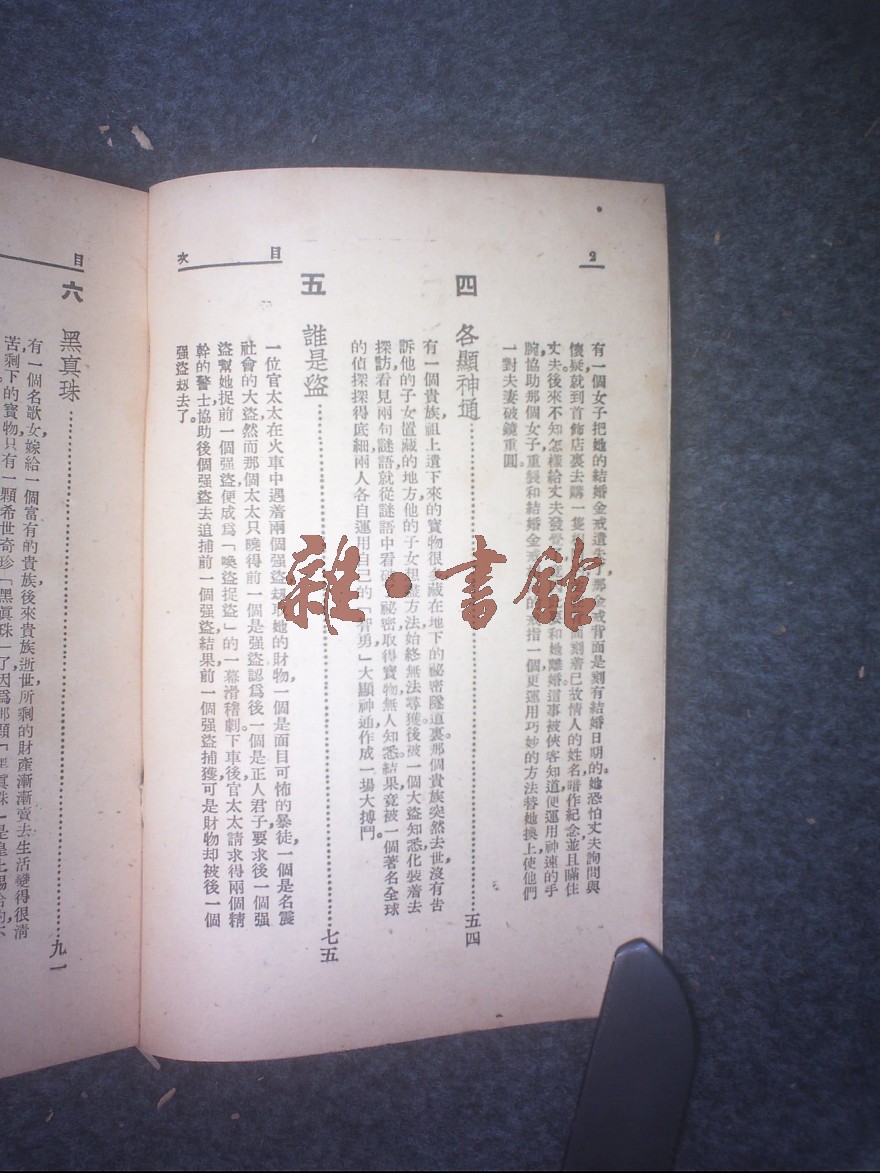 2
有一個女子把她的結婚金戒遺失了,那金戒背面是刻有結婚日期的。她恐怕丈夫詢問與
懷疑,就到首飾店裏去購一隻 刻着已故情人的姓名,暗作紀念,並且瞞住
丈夫。後來不知怎樣給丈夫發覺 和她離婚。這事被俠客知道,便運用神速的手
腕,協助那個女子重製和結婚金戒 的戒指一個,更運用巧妙的方法替她換上,使他們
一對夫妻破鏡重圓。
四 各顯神通 五四
有一個貴族,祖上遺下來的寶物很多,藏在地下的祕密隧道裏。那個貴族突然去世,沒有告
訴他的子女置藏的地方。他的子女想盡方法,始終無法尋獲。後被一個大盜知悉,化裝着去
探訪,看見兩句謎語,就從謎語中看破祕密,取得寶物,無人知悉。結果,竟被一個著名全球
的偵探探得底細,兩人各自運用自己的「智勇」大顯神通,作成一場大搏鬥。
五 誰是盜 七五
一位官太太在火車中遇着兩個强盜刼取她的財物,一個是面目可怖的暴徒,一個是名震
社會的大盜。然而那個太太只曉得前一個是强盜,認爲後一個是正人君子,要求後一個强
盜幫她捉前一個强盜,便成爲「喚盜捉盜」的一幕滑稽劇。下車後,官太太請求得兩個精
幹的警士協助後個强盜去追捕前一個强盜,結果前一個强盜捕獲,可是財物却被後一個
强盜刼去了。
目次
目
六 黑真珠 九一
有一個名歌女,嫁給一個富有的貴族,後來貴族逝世,所剩的財產漸漸賣去,生活變得很清
苦,剩下的寶物只有一顆希世奇珍「黑眞珠」了。因爲那顆「黑眞珠」是皇上賜給的,不
雜·書館